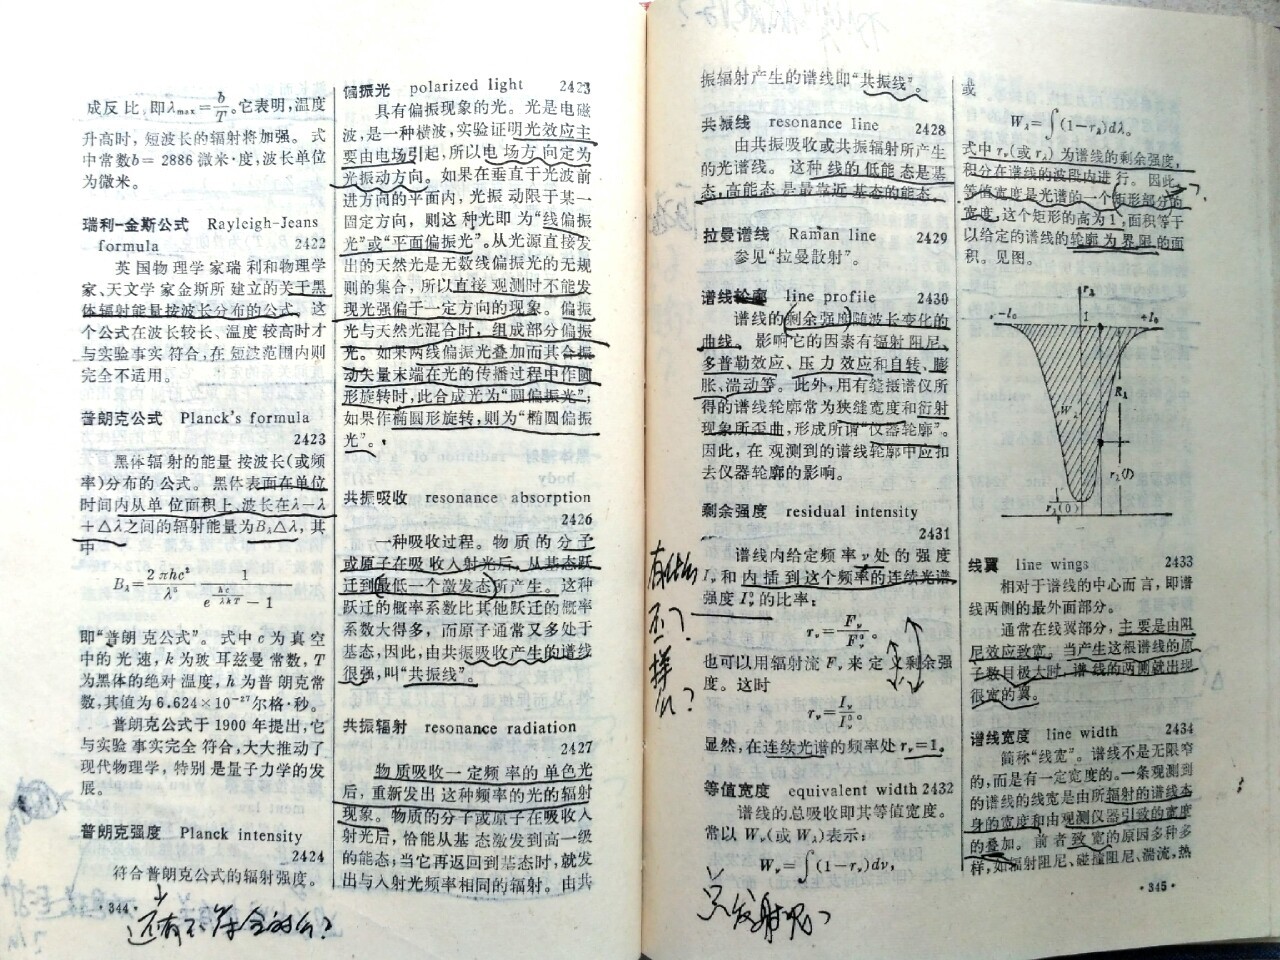 成反比,即λmax=b/T。它表明,温度
升高时,短波长的辐射将加强。式
中常数b= 2886 微米·度,波长单位
为微米。
瑞利-金斯公式 Rayleigh-Jeans
formula 2422
英国物理学家瑞利和物理学
家、天文学家金斯所建立的关于黑
体辐射能量按波长分布的公式。这
个公式在波长较长、温度较高时才
与实验事实符合,在短波范围内则
完全不适用。
普朗克公式 Planck's formula
2423
黑体辐射的能量按波长(或频
率)分布的公式。黑体表面在单位
时间内从单位面积上、波长在λ—λ
+△λ之间的辐射能量为Bλ△λ,其
中
即“普朗克公式”。式中c为真空
中的光速,k为玻耳兹曼常数,T
为黑体的绝对温度,h为普朗克常
数,其值为6.624×10⁻²⁷尔格·秒。
普朗克公式于1900年提出,它
与实验事实完全符合,大大推动了
现代物理学,特别是量子力学的发
展。
普朗克强度 Planck intensity
2424
符合普朗克公式的辐射强度。
·344·
还有不符合的么?
偏振光 polarized light 2425
具有偏振现象的光。光是电磁
波,是一种横波,实验证明光效应主
要由电场引起,所以电场方向定为
光振动方向。如果在垂直于光波前
进方向的平面内,光振动限于某一
固定方向,则这种光即为“线偏振
光”或“平面偏振光”。从光源直接发
出的天然光是无数线偏振光的无规
则的集合,所以直接观测时不能发
现光强偏于一定方向的现象。偏振
光与天然光混合时,组成部分偏振
光。如果两线偏振光叠加而其合振
动矢量末端在光的传播过程中作圆
形旋转时,此合成光为“圆偏振光”;
如果作椭圆形旋转,则为“椭圆偏振
光”。
共振吸收 resonance absorption
2426
一种吸收过程。物质的分子
或原子在吸收入射光后,从基态跃
迁到最低一个激发态所产生。这种
跃迁的概率系数比其他跃迁的概率
系数大得多,而原子通常又多处于
基态,因此,由共振吸收产生的谱线
很强,叫“共振线”。
共振辐射 resonance radiation
2427
物质吸收一定频率的单色光
后,重新发出这种频率的光的辐射
现象。物质的分子或原子在吸收入
射光后,恰能从基态激发到高一级
的能态;当它再返回到基态时,就发
出与入射光频率相同的辐射。由共
振辐射产生的谱线即“共振线”。
共振线 resonance line 2428
由共振吸收或共振辐射所产生
的光谱线。这种线的低能态是基
态,高能态是最靠近基态的能态。
拉曼谱线 Raman line 2429
参见“拉曼散射”。
谱线轮廓 line profile 2430
谱线的剩余强度随波长变化的
曲线。影响它的因素有辐射阻尼、
多普勒效应、压力效应和自转、膨
胀、湍动等。此外,用有缝摄谱仪所
得的谱线轮廓常为狭缝宽度和衍射
现象所歪曲,形成所谓“仪器轮廓”。
因此,在观测到的谱线轮廓中应扣
去仪器轮廓的影响。
剩余强度 residual intensity
2431
谱线内给定频率ν处的强度
Iν和内插到这个频率的连续光谱
强度I⁰ν的比率:
rν=Fν/F⁰ν。
也可以用辐射流Fν来定义剩余强
度。这时
rν=Iν/I⁰ν。
显然,在连续光谱的频率处rν=1。
等值宽度 equivalent width 2432
谱线的总吸收即其等值宽度。
常以Wν(或Wλ)表示:
Wν=∫(1-rν)dν,
只发射呢?
或
Wλ=∫(1-rλ)dλ。
式中rν(或rλ)为谱线的剩余强度,
积分在谱线的波段内进行。因此,
等值宽度是光谱的一个矩形部分的
宽度,这个矩形的高为1,面积等于
以给定的谱线的轮廓为界限的面
积。见图。
线翼 line wings 2433
相对于谱线的中心而言,即谱
线两侧的最外面部分。
通常在线翼部分,主要是由阻
尼效应致宽。当产生这根谱线的原
子数目极大时,谱线的两侧就出现
很宽的翼。
谱线宽度 line width 2434
简称“线宽”。谱线不是无限窄
的,而是有一定宽度的。一条观测到
的谱线的线宽是由所辐射的谱线本
身的宽度和由观测仪器引致的宽度
的叠加。前者致宽的原因多种多
样,如辐射阻尼、碰撞阻尼、湍流,热
·345·